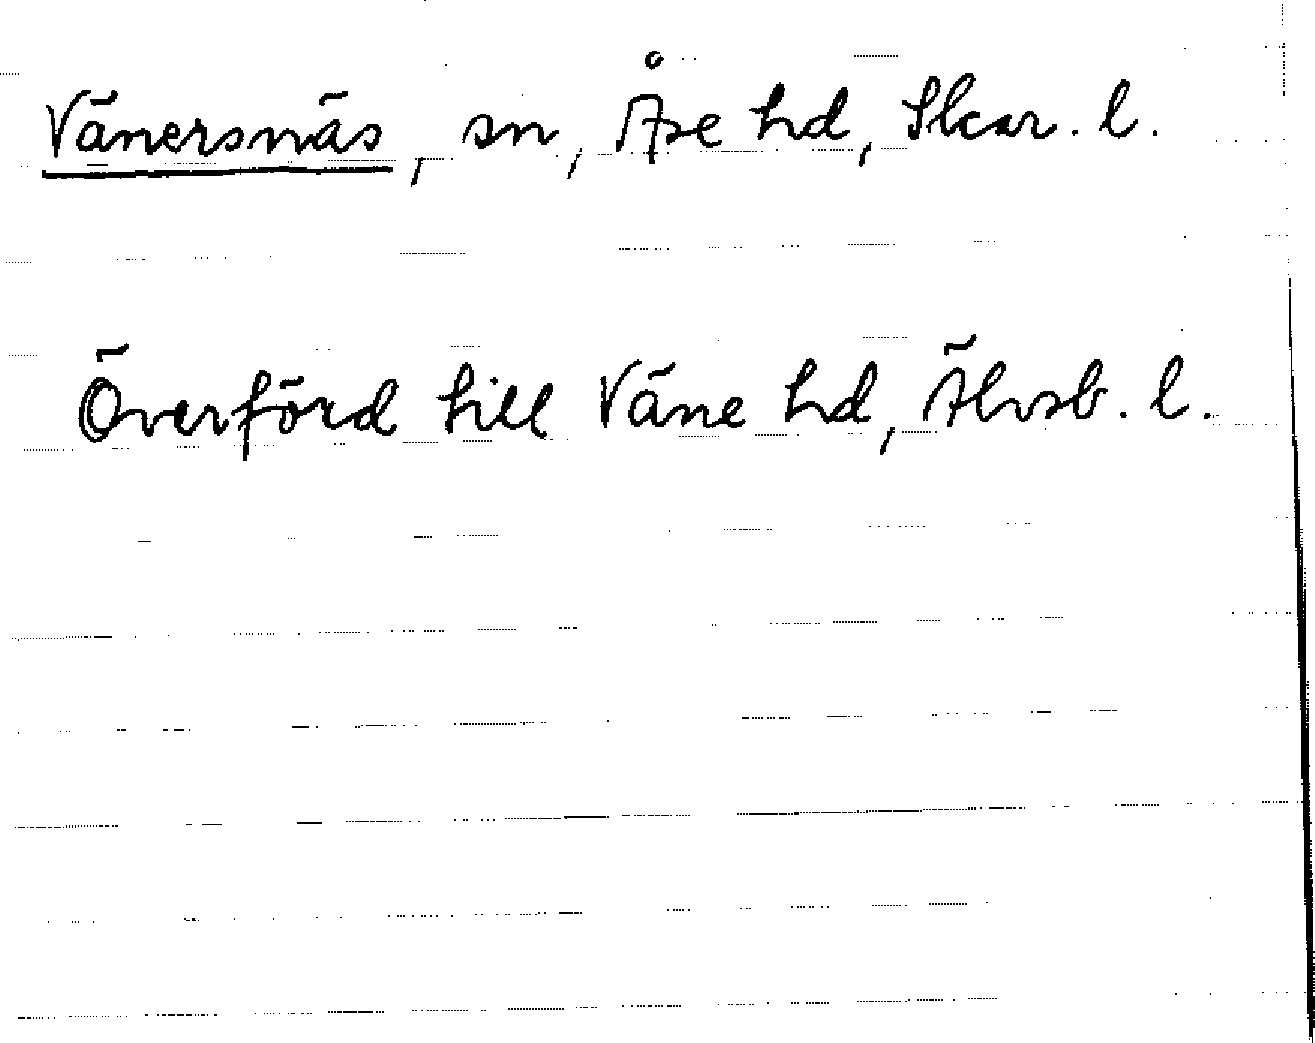 Vänersnäs, sn, Åse hd, Skar. l.
Överförd till Väne hd, Älvsb. l.